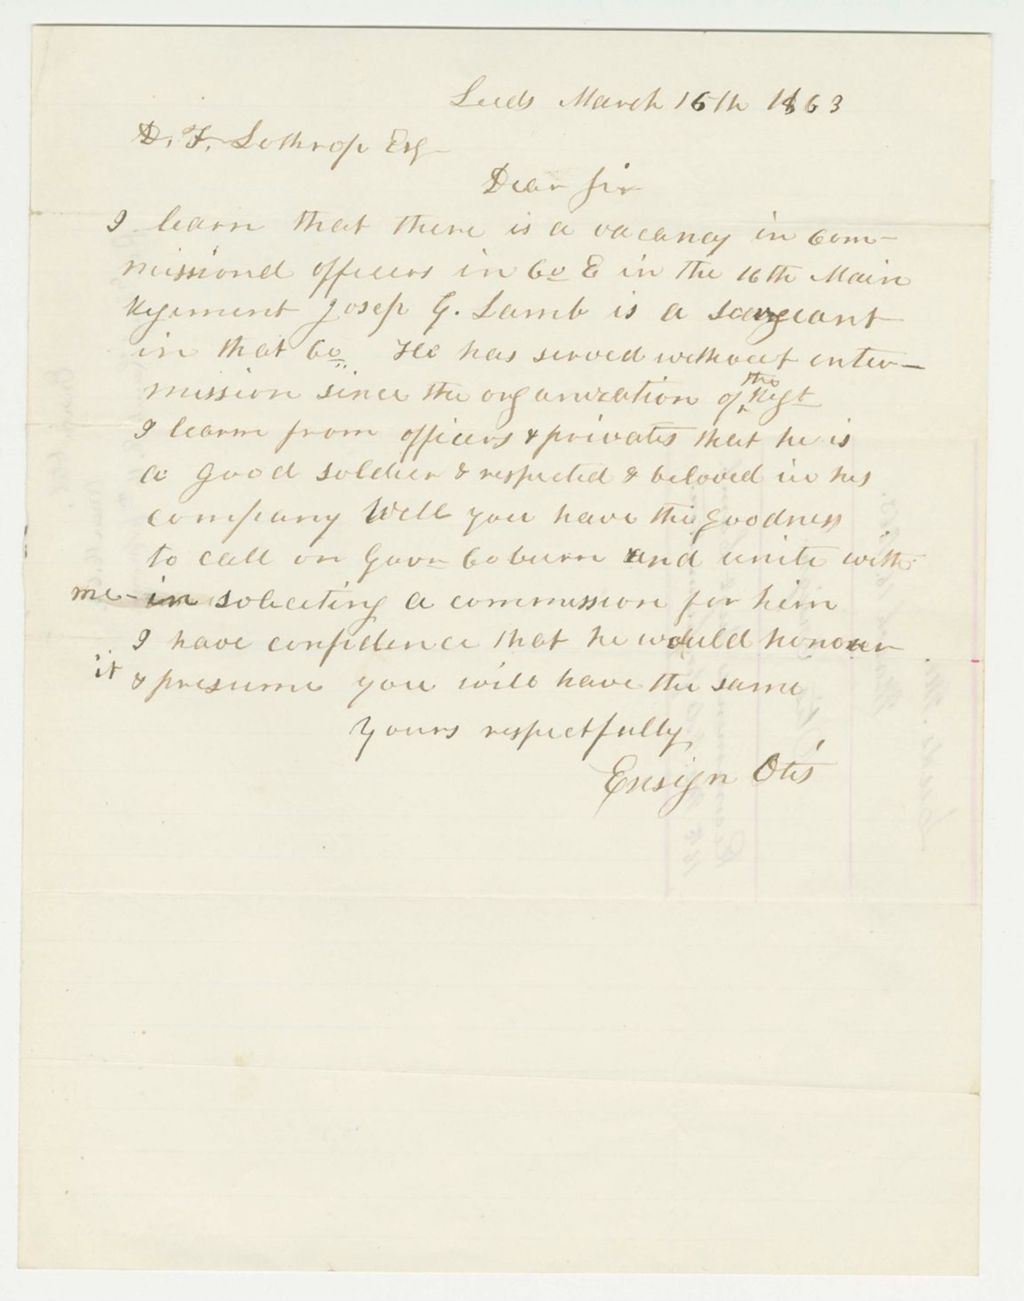 Leeds March 16th 1863
D. F. Lothrop Esq
Dear Sir
I learn that there is a vacancy in com-
missiond officers in Co E in the 16th Main
Regiment Josep G. Lamb is a sargeant
in that Co. He has served without inter-
mission since the organization of the Regt
I learn from officers & privates that he is
a good soldier & respected & beloved in his
company Will you have the goodness
to call on Govr Coburn and unite with
me in soliciting a commission for him
I have confidence that he would honour
it & presume you will have the same
Yours respectfully
Ensign Otis